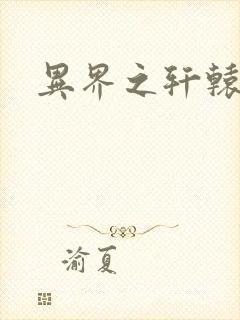 異界之轩辕
渝夏